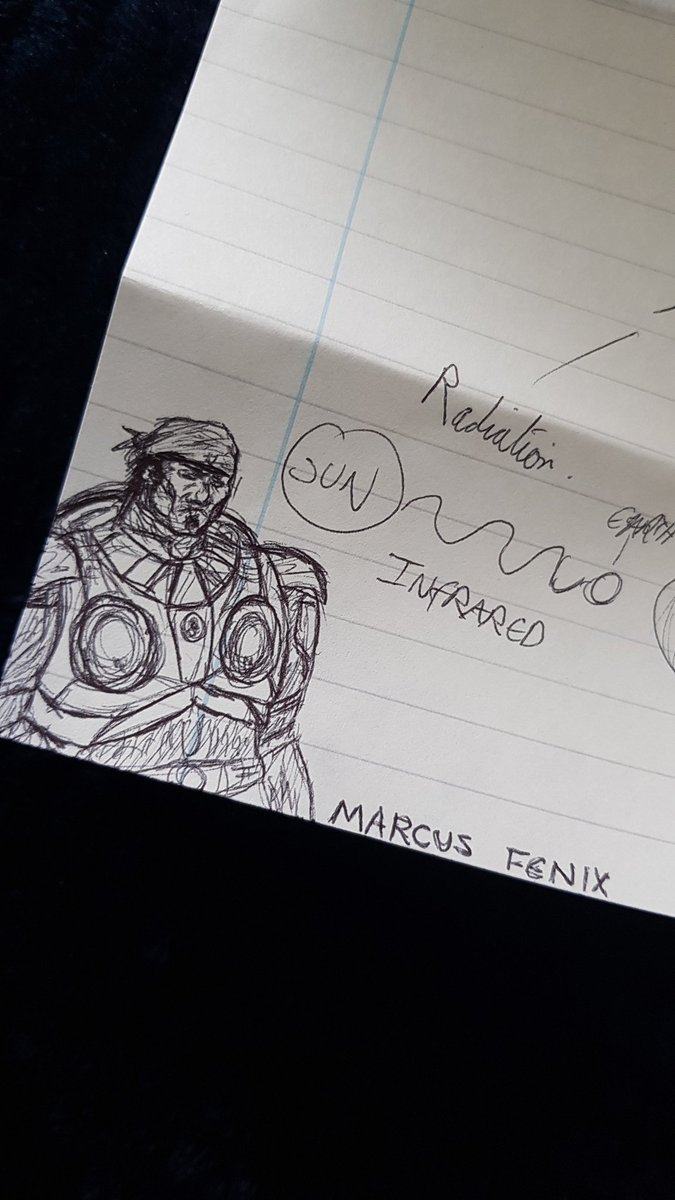 Radiation.
SUN
EARTH
INFRARED
MARCUS FENIX